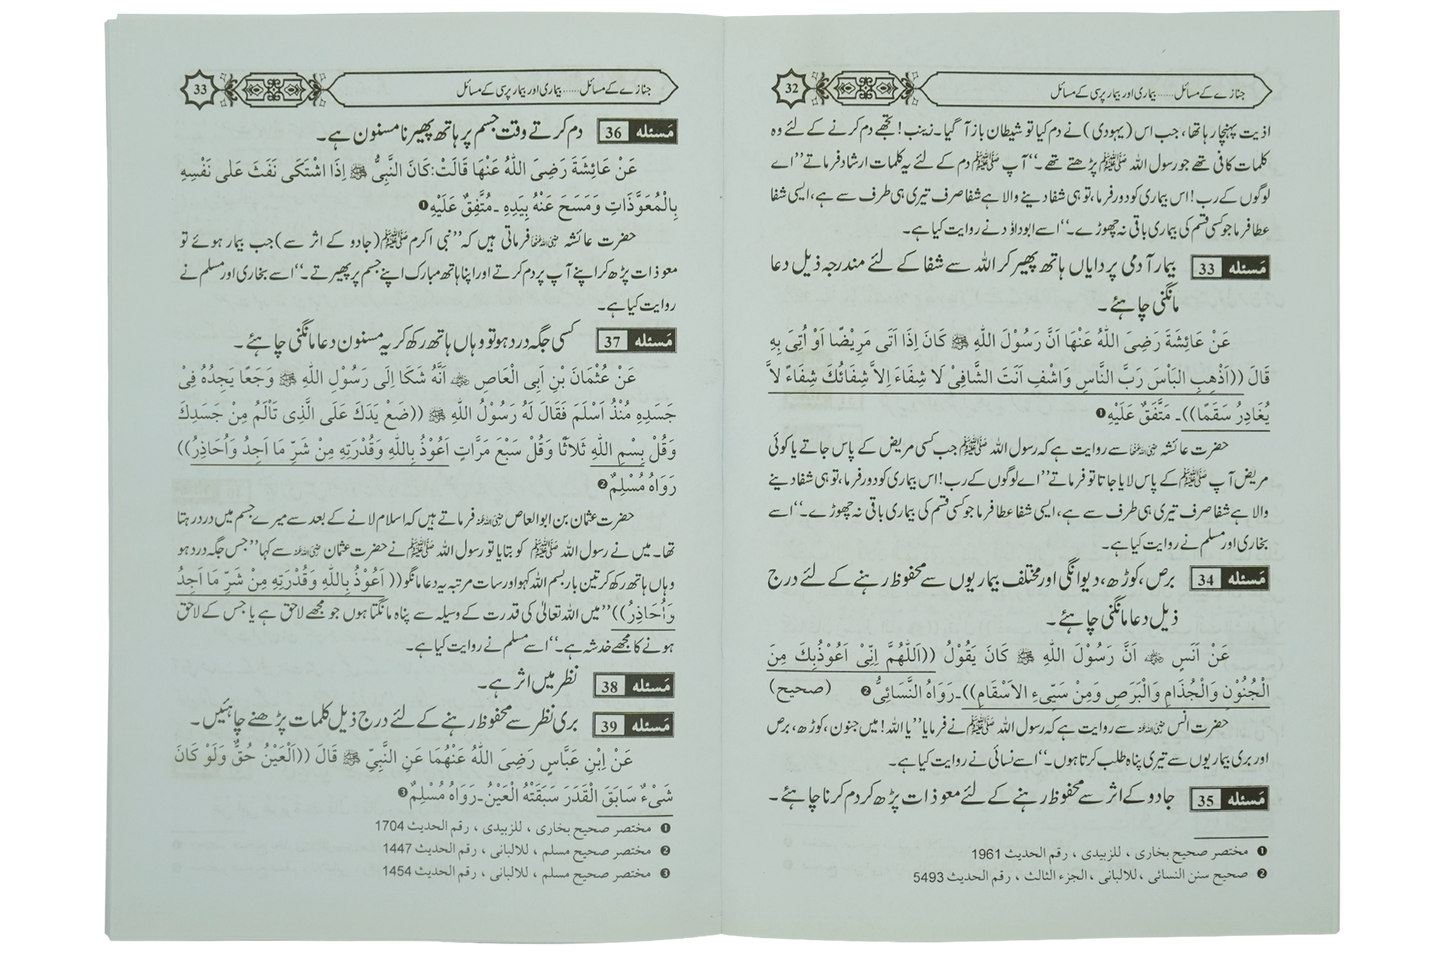 جنازے کے مسائل......بیماری اور بیمار پرسی کے مسائل
32
اذیت پہنچا رہا تھا، جب اس (یہودی) نے دم کیا تو شیطان باز آ گیا۔ زینب! تجھے دم کرنے کے لئے وہ
کلمات کافی تھے جو رسول اللہ ﷺ پڑھتے تھے۔“ آپ ﷺ دم کے لئے یہ کلمات ارشاد فرماتے ”اے
لوگوں کے رب! اس بیماری کو دور فرما، تو ہی شفا دینے والا ہے شفا صرف تیری ہی طرف سے ہے، ایسی شفا
عطا فرما جو کسی قسم کی بیماری باقی نہ چھوڑے۔“ اسے ابوداؤد نے روایت کیا ہے۔
مَسئله 33 بیمار آدمی پر دایاں ہاتھ پھیر کر اللہ سے شفا کے لئے مندرجہ ذیل دعا
مانگنی چاہئے۔
عَنْ عَائِشَةَ رَضِىَ اللّٰهُ عَنْهَا اَنَّ رَسُوْلَ اللّٰهِ ﷺ كَانَ اِذَا اَتَى مَرِيْضًا اَوْ اُتِىَ بِهِ
قَالَ ((اَذْهِبِ الْبَأْسَ رَبَّ النَّاسِ وَاشْفِ اَنْتَ الشَّافِىْ لَا شِفَاءَ اِلاَّ شِفَائُكَ شِفَاءً لاَّ
يُغَادِرُ سَقَمًا))۔ مُتَّفَقٌ عَلَيْهِ❶
حضرت عائشہ رضی اللہ عنہا سے روایت ہے کہ رسول اللہ ﷺ جب کسی مریض کے پاس جاتے یا کوئی
مریض آپ ﷺ کے پاس لایا جاتا تو فرماتے ”اے لوگوں کے رب! اس بیماری کو دور فرما، تو ہی شفا دینے
والا ہے شفا صرف تیری ہی طرف سے ہے، ایسی شفا عطا فرما جو کسی قسم کی بیماری باقی نہ چھوڑے۔“ اسے
بخاری اور مسلم نے روایت کیا ہے۔
مَسئله 34 برص، کوڑھ، دیوانگی اور مختلف بیماریوں سے محفوظ رہنے کے لئے درج
ذیل دعا مانگنی چاہئے۔
عَنْ اَنَسٍ ؓ اَنَّ رَسُوْلَ اللّٰهِ ﷺ كَانَ يَقُوْلُ ((اَللّٰهُمَّ اِنِّىْ اَعُوْذُبِكَ مِنَ
الْجُنُوْنِ وَالْجُذَامِ وَالْبَرَصِ وَمِنْ سَيِّىءِ الْاَسْقَامِ))۔رَوَاهُ النَّسَائِىُّ❷ (صحيح)
حضرت انس رضی اللہ عنہ سے روایت ہے کہ رسول اللہ ﷺ نے فرمایا ”یا اللہ! میں جنون، کوڑھ، برص
اور بری بیماریوں سے تیری پناہ طلب کرتا ہوں۔“ اسے نسائی نے روایت کیا ہے۔
مَسئله 35 جادو کے اثر سے محفوظ رہنے کے لئے معوذات پڑھ کر دم کرنا چاہئے۔
❶ مختصر صحیح بخاری ، للزبیدی ، رقم الحدیث 1961
❷ صحیح سنن النسائی ، للالبانی ، الجزء الثالث ، رقم الحدیث 5493
جنازے کے مسائل......بیماری اور بیمار پرسی کے مسائل
33
مَسئله 36 دم کرتے وقت جسم پر ہاتھ پھیرنا مسنون ہے۔
عَنْ عَائِشَةَ رَضِىَ اللّٰهُ عَنْهَا قَالَتْ:كَانَ النَّبِىُّ ﷺ اِذَا اشْتَكَى نَفَثَ عَلٰى نَفْسِهِ
بِالْمُعَوِّذَاتِ وَمَسَحَ عَنْهُ بِيَدِهِ ۔مُتَّفَقٌ عَلَيْهِ❶
حضرت عائشہ رضی اللہ عنہا فرماتی ہیں کہ ”نبی اکرم ﷺ (جادو کے اثر سے) جب بیمار ہوئے تو
معوذات پڑھ کر اپنے آپ پر دم کرتے اور اپنا ہاتھ مبارک اپنے جسم پر پھیرتے۔“ اسے بخاری اور مسلم نے
روایت کیا ہے۔
مَسئله 37 کسی جگہ درد ہو تو وہاں ہاتھ رکھ کر یہ مسنون دعا مانگنی چاہئے۔
عَنْ عُثْمَانَ بْنِ اَبِى الْعَاصِ ؓ اَنَّهُ شَكَا اِلٰى رَسُوْلِ اللّٰهِ ﷺ وَجَعًا يَجِدُهُ فِىْ
جَسَدِهِ مُنْذُ اَسْلَمَ فَقَالَ لَهُ رَسُوْلُ اللّٰهِ ﷺ ((ضَعْ يَدَكَ عَلَى الَّذِى تَاْلَمُ مِنْ جَسَدِكَ
وَقُلْ بِسْمِ اللّٰهِ ثَلاَثًا وَقُلْ سَبْعَ مَرَّاتٍ اَعُوْذُ بِاللّٰهِ وَقُدْرَتِهِ مِنْ شَرِّ مَا اَجِدُ وَاُحَاذِرُ))
رَوَاهُ مُسْلِمٌ❷
حضرت عثمان بن ابوالعاص رضی اللہ عنہ فرماتے ہیں کہ اسلام لانے کے بعد سے میرے جسم میں درد رہتا
تھا۔ میں نے رسول اللہ ﷺ کو بتایا تو رسول اللہ ﷺ نے حضرت عثمان رضی اللہ عنہ سے کہا ”جس جگہ درد ہو
وہاں ہاتھ رکھ کر تین بار بسم اللہ کہو اور سات مرتبہ یہ دعا مانگو ((اَعُوْذُ بِاللّٰهِ وَقُدْرَتِهِ مِنْ شَرِّ مَا اَجِدُ
وَاُحَاذِرُ)) ”میں اللہ تعالیٰ کی قدرت کے وسیلہ سے پناہ مانگتا ہوں جو مجھے لاحق ہے یا جس کے لاحق
ہونے کا مجھے خدشہ ہے۔“ اسے مسلم نے روایت کیا ہے۔
مَسئله 38 نظر میں اثر ہے۔
مَسئله 39 بری نظر سے محفوظ رہنے کے لئے درج ذیل کلمات پڑھنے چاہئیں۔
عَنْ اِبْنِ عَبَّاسٍ رَضِىَ اللّٰهُ عَنْهُمَا عَنِ النَّبِىِّ ﷺ قَالَ ((اَلْعَيْنُ حُقٌّ وَلَوْ كَانَ
شَىْءٌ سَابَقَ الْقَدَرَ سَبَقَتْهُ الْعَيْنُ۔رَوَاهُ مُسْلِمٌ❸
❶ مختصر صحیح بخاری ، للزبیدی ، رقم الحدیث 1704
❷ مختصر صحیح مسلم ، للالبانی ، رقم الحدیث 1447
❸ مختصر صحیح مسلم ، للالبانی ، رقم الحدیث 1454